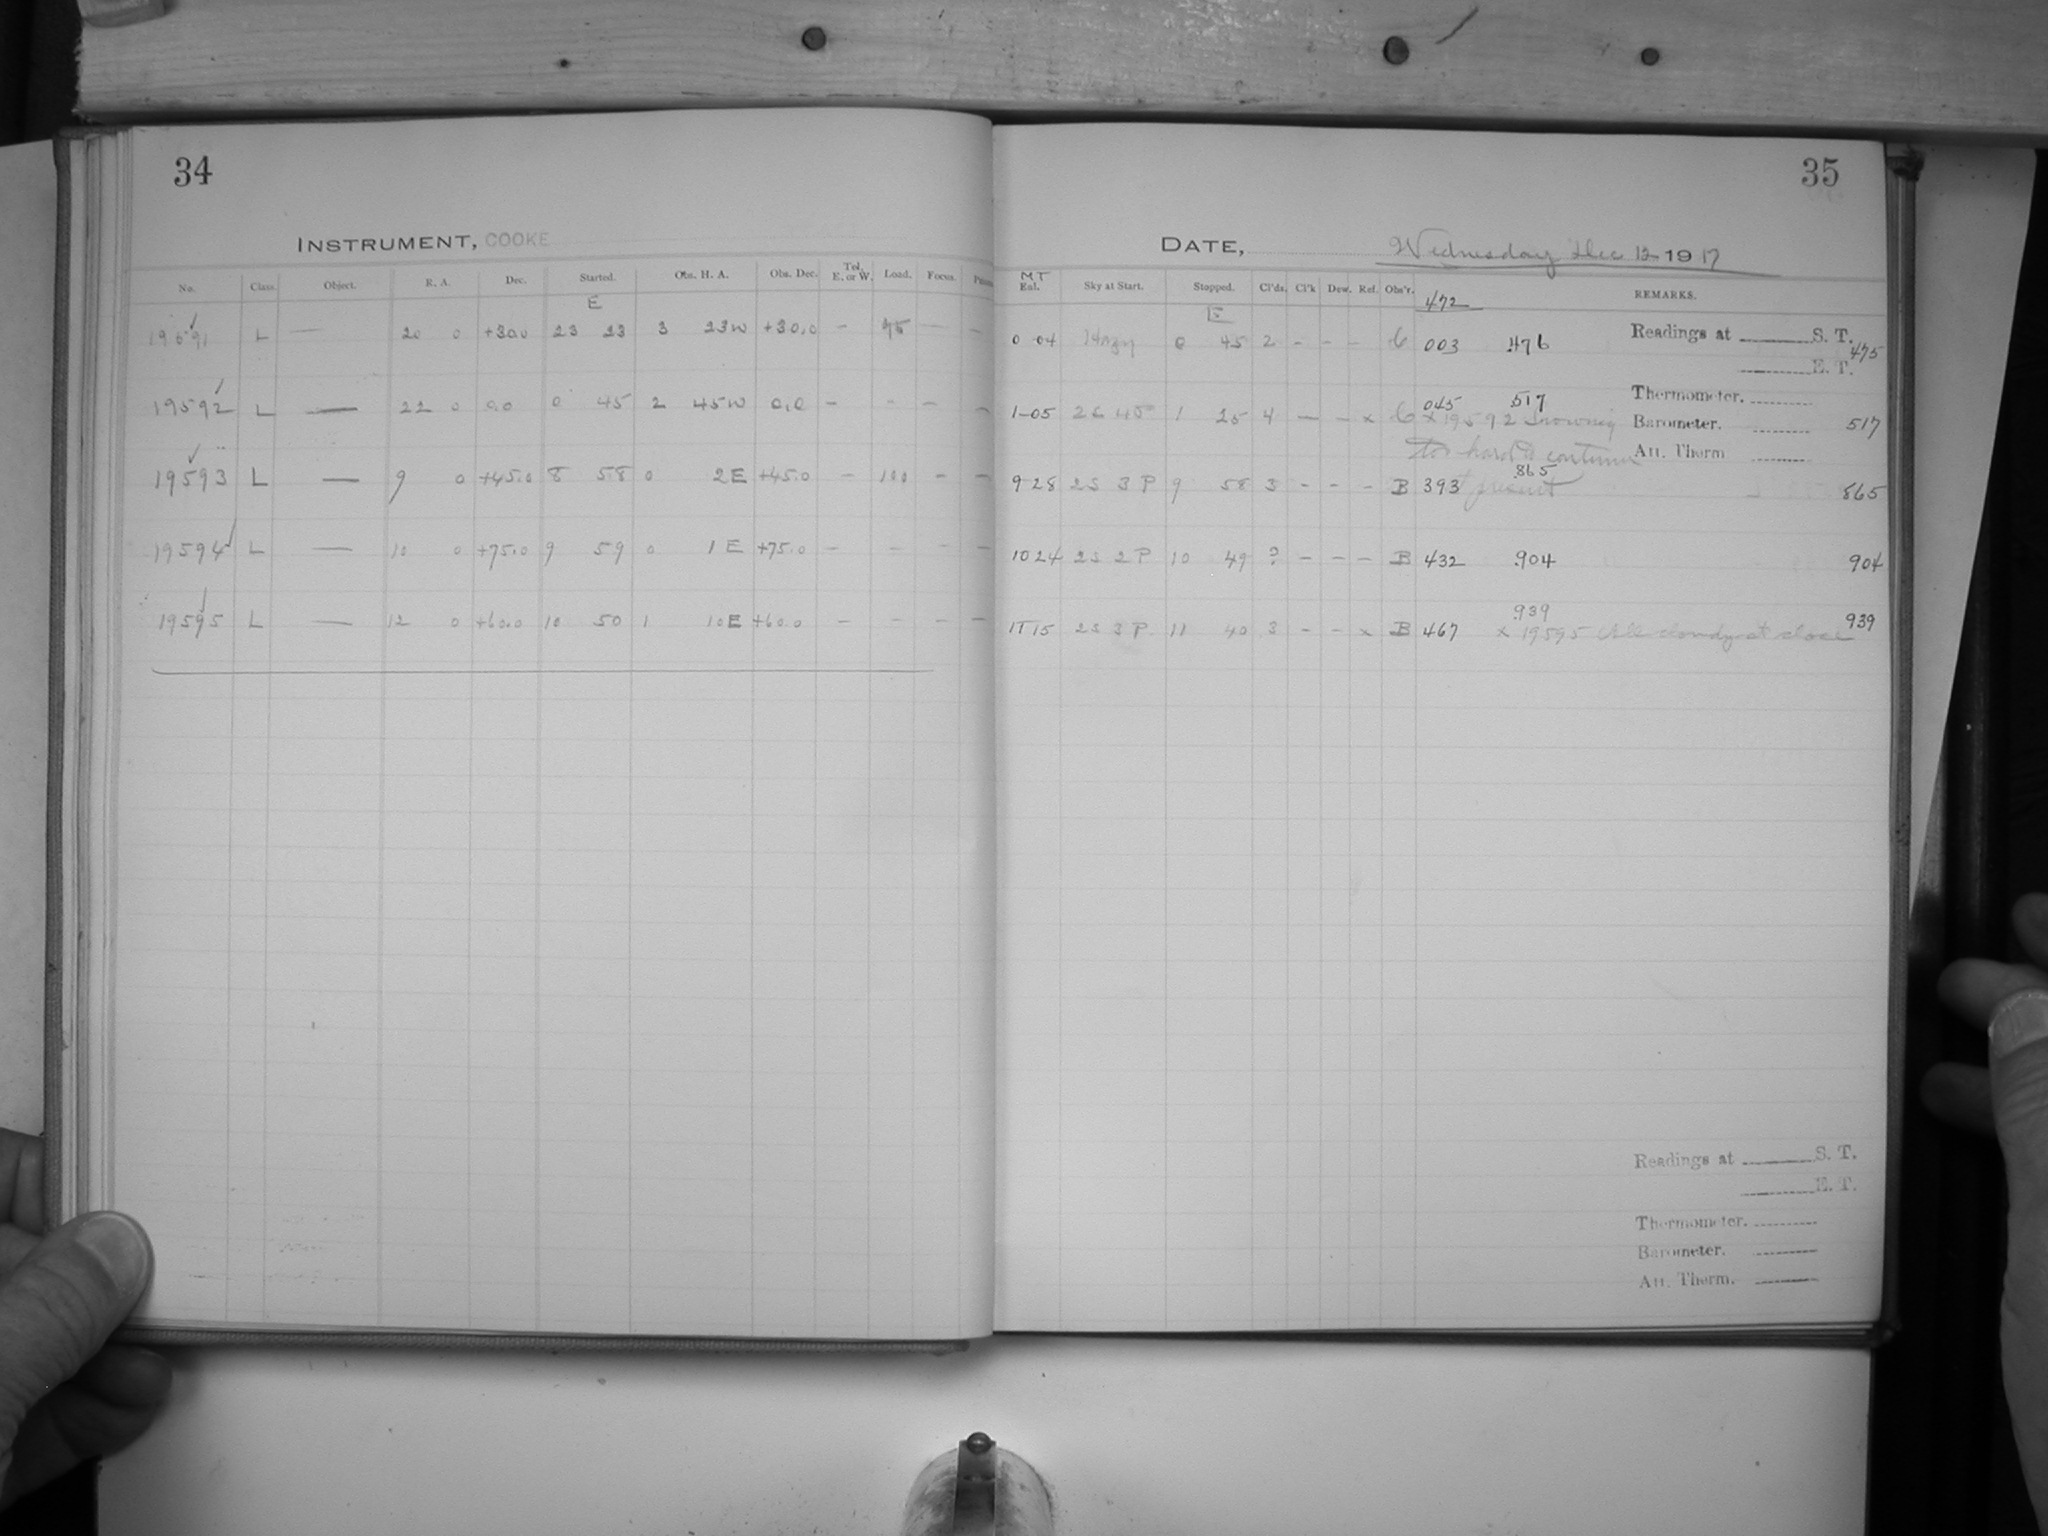 34
INSTRUMENT, COOKE
No. Class. Object. R. A. Dec. Started. Obs. H. A. Obs. Dec. Tel. E. or W. Load. Focus.
E
19591 L — 20 0 +30.0 23 23 3 23W +30.0 - 95 - -
19592 L — 22 0 0.0 0 45 2 45W 0.0 - - - -
19593 L — 9 0 +45.0 8 58 0 2E +45.0 - 100 - -
19594 L — 10 0 +75.0 9 59 0 1E +75.0 - - - -
19595 L — 12 0 +60.0 10 50 1 10E +60.0 - - - -
35
DATE, Wednesday Dec 12 1917
MT
Eal. Sky at Start. Stopped. Cl'ds. Cl'k Dew. Ref. Obs'r. 472 REMARKS.
E
0 04 Hazy 0 45 2 - - - C 003 .476 Readings at S. T. 475
E. T.
Thermometer.
1-05 1 25 4 - - x C 045 .517 Barometer. 517
x 19592 Snowing
too hard to continue Att. Therm
present
9 28 2S 3P 9 58 3 - - - B 393 .865 865
10 24 2S 2P 10 49 ? - - - B 432 .904 904
11 15 2S 3P. 11 40 3 - - x B 467 .939 939
x 19595 All cloudy at close
Readings at S. T.
E. T.
Thermometer.
Barometer.
Att. Therm.